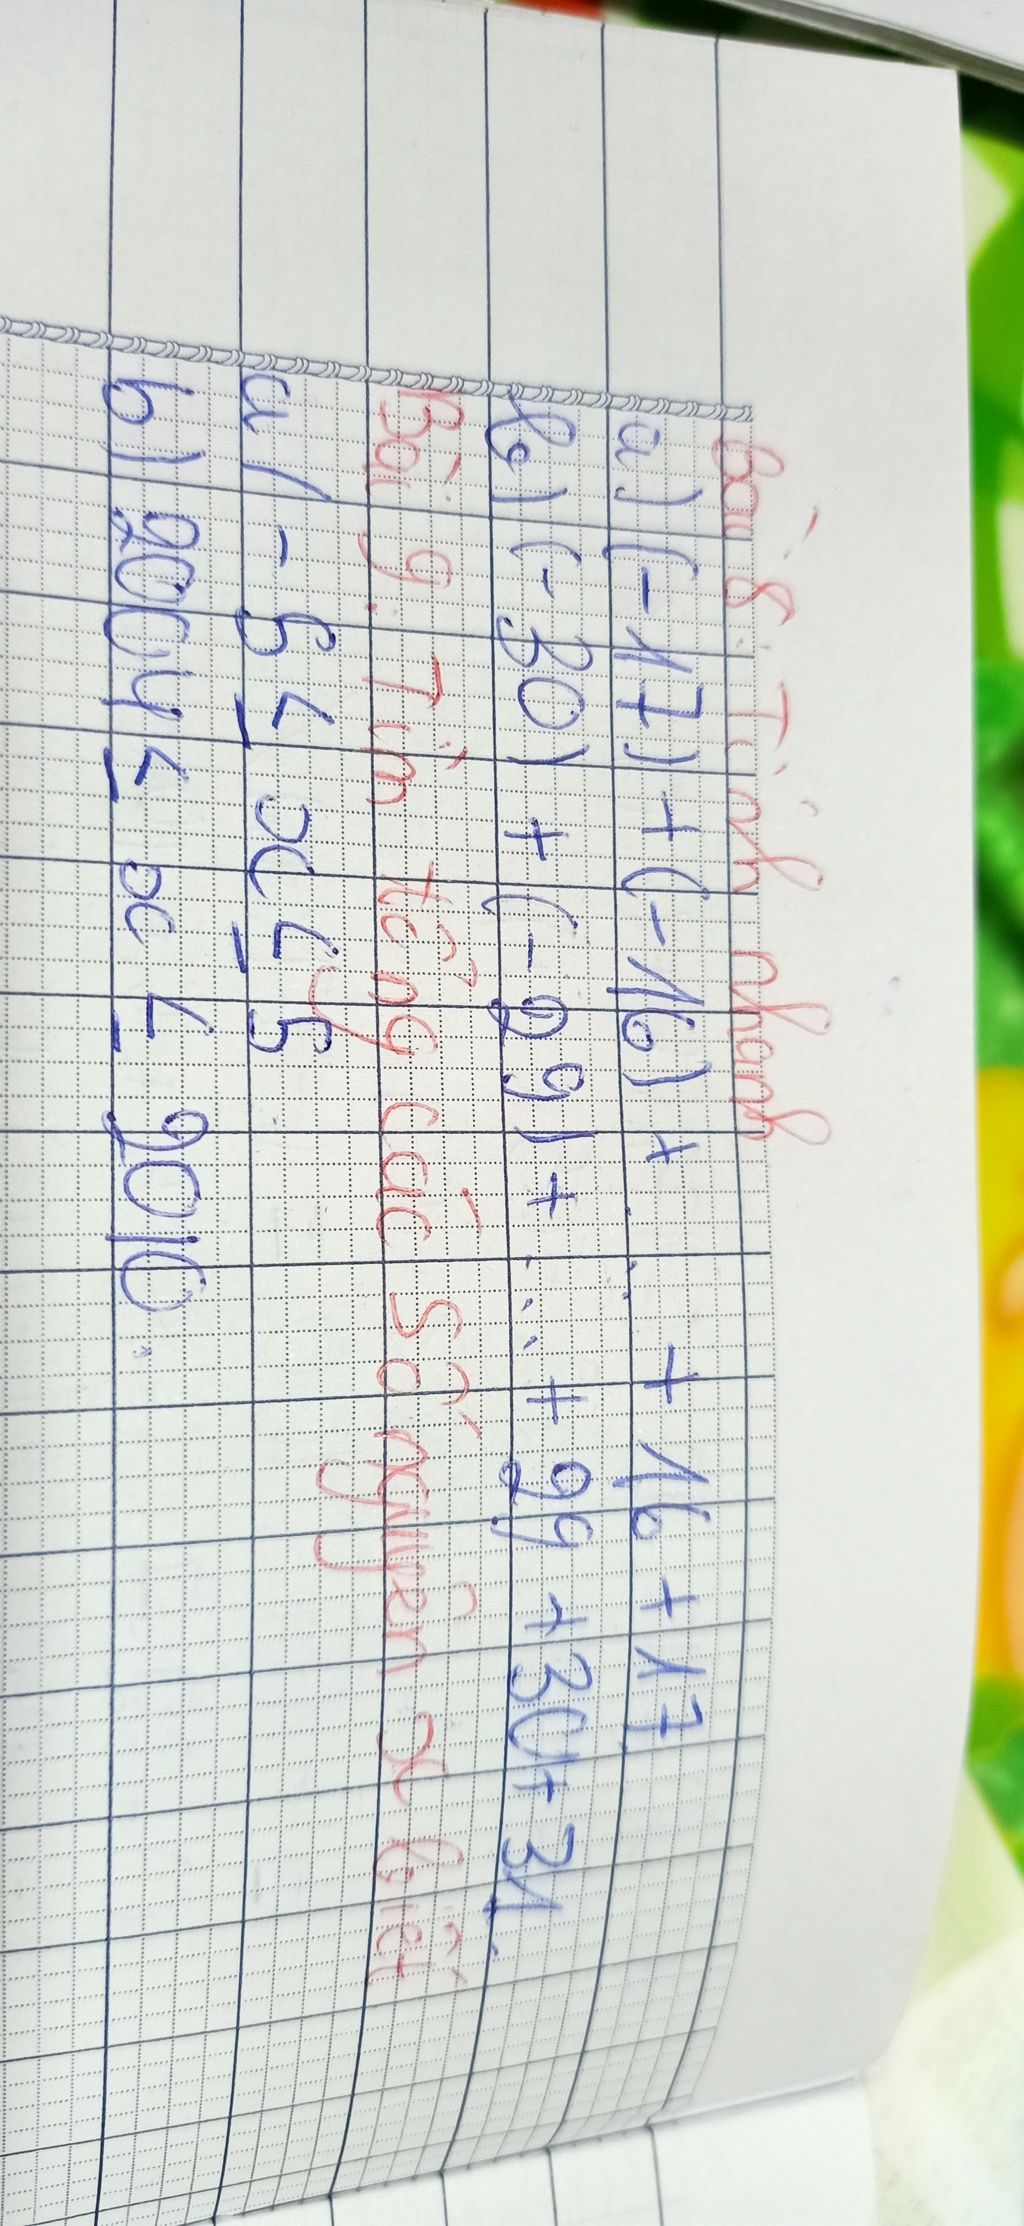 Bài 8: Tính nhanh
a) (-17) + (-16) + ... + 16 + 17
b) (-30) + (-29) + ... + 29 + 30 + 31.
Bài 9. Tìm tổng các số nguyên x biết
a/ - 5 ≤ x ≤ 5
b) 2004 ≤ x ≤ 2010